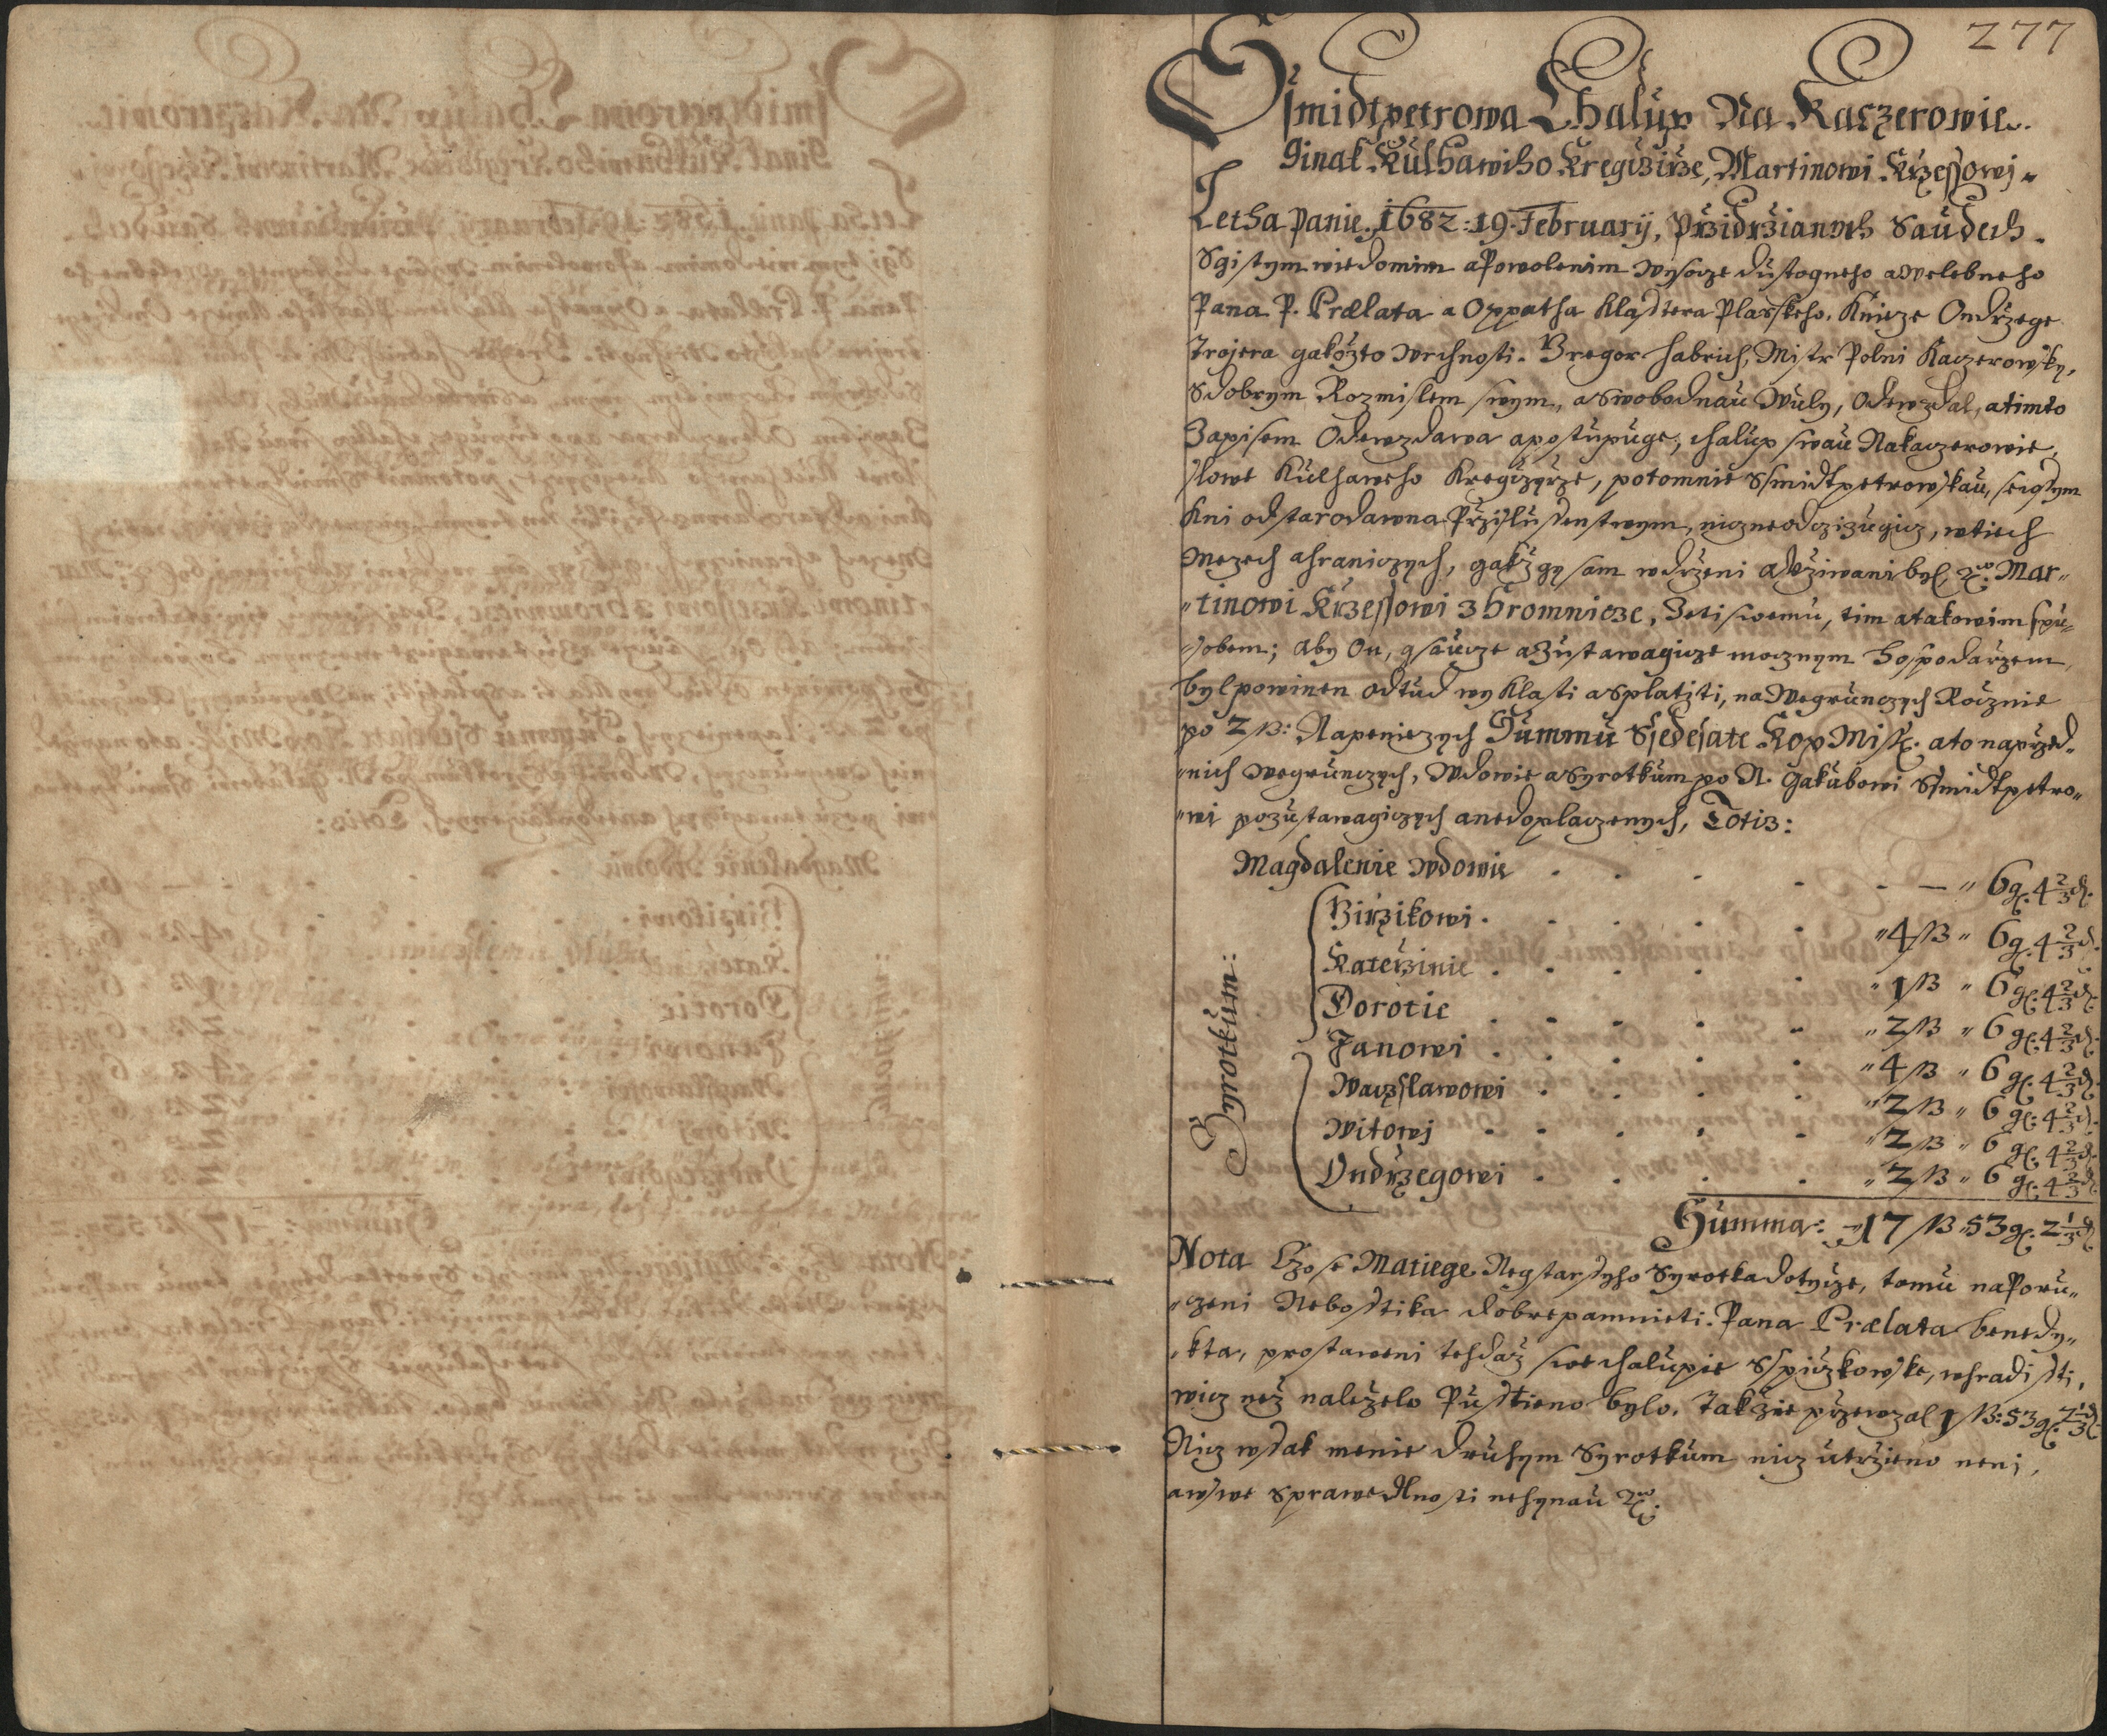 277
Ssmidtpetrowa Chalup Na Kaczerowie.
Ginak Kulhawiho Kregczirze, Martinowi Krzessowj.
Letha Panie. 1682: 19. February, Przidrzianych Saudech.
Sgistym wiedomim a Powolenim wysocze dustogneho a Welebneho
Pana P. Prælata a Oppatha Klasstera Plasskeho, Knieze Ondrzege
Trojera gakozto Wrchnosti. Gregor habrich, Mistr Polni Kaczerowsky,
Sdobrym Rozmislem swym, a swobodnau Wuly, Odewzdal, a timto
Zapisem Odewzdawa a postupuge, chalup swau Nakaczerowie,
slowe Kulhaweho Kregczyrze, potomnie Ssmidtpetrowskau, sewssym
Kni odstarodawna Przislussenstwym, nicz neodczizugicz, wtiech
Mezech a hraniczych, gakz gy sam wdrzeni a Vziwani byl ꝛc. Mar„
„tinowi Krzessowi z hromnicze, Zeti swemu, tim a takowim spu„
„sobem; aby On, gsaucze a Zustawagicze mocznym hospodarzem,
byl powinen odtud wyklasti a Splatiti, na Wegrunczych Rocznie
po 2 ß: Napenieziych Summu Ssedesate Kop Miss. a to naprzed„
„nich wegrunczych, Wdowie a Syrotkum po N. Gakubowi Ssmidtpetro„
„wi pozustawagiczych a nedoplaczenych, Totiz:
Magdalenie Wdowie . . . . — „ 6 g. 4 2/3 d.
Syrotkum:
Girzikowi . . . . „ 4 ß „ 6 g. 4 2/3 d.
Katerzinie . . . . „ 1 ß „ 6 g. 4 2/3 d.
Dorotie . . . . „ 2 ß „ 6 g. 4 2/3 d.
Janowi . . . . „ 4 ß „ 6 g. 4 2/3 d.
Waczslawowi . . . . „ 2 ß „ 6 g. 4 2/3 d.
Witowj . . . . „ 2 ß „ 6 g. 4 2/3 d.
Ondrzegowi . . . . „ 2 ß „ 6 g. 4 2/3 d.
Summa: 17 ß 53 g. 2 1/3 d.
Nota Czo se Matiege Negstarssyho Syrotka dotycze, tomu na Poru„
„czeni Nebosstika dobre pamnieti. Pana Prælata benedy„
„kta, prostaweni tehdaz swe chalupie Sspiczkowske, whradissti,
wicz nez nalezelo Pusstieno bylo. Takzie przewzal 1 ß: 53 g. 2 1/3 d.
Nicz wssak menie druhym Syrotkum nicz utrzieno neni,
a wswe Sprawedlnosti nehynau ꝛc.